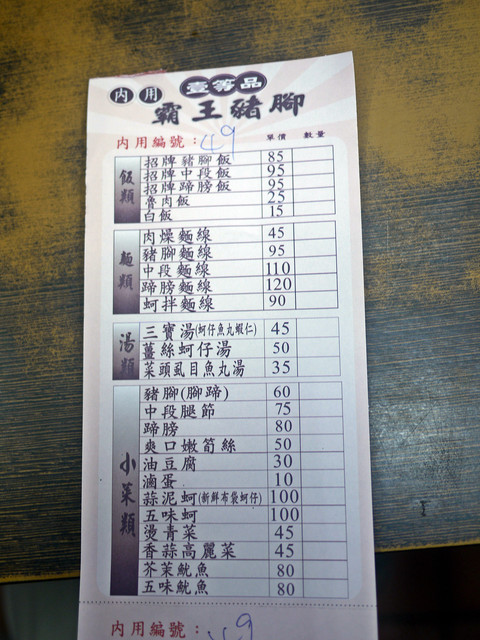 內用 壹等品
霸王豬腳
內用編號：49 單價 數量
飯類
招牌豬腳飯 85
招牌中段飯 95
招牌蹄膀飯 95
魯肉飯 25
白飯 15
麵類
肉燥麵線 45
豬腳麵線 95
中段麵線 110
蹄膀麵線 120
蚵拌麵線 90
湯類
三寶湯(蚵仔魚丸蝦仁) 45
薑絲蚵仔湯 50
菜頭虱目魚丸湯 35
小菜類
豬腳(腳蹄) 60
中段腿節 75
蹄膀 80
爽口嫩筍絲 50
油豆腐 30
滷蛋 10
蒜泥蚵(新鮮布袋蚵仔) 100
五味蚵 100
燙青菜 45
香蒜高麗菜 45
芥茉魷魚 80
五味魷魚 80
內用編號：